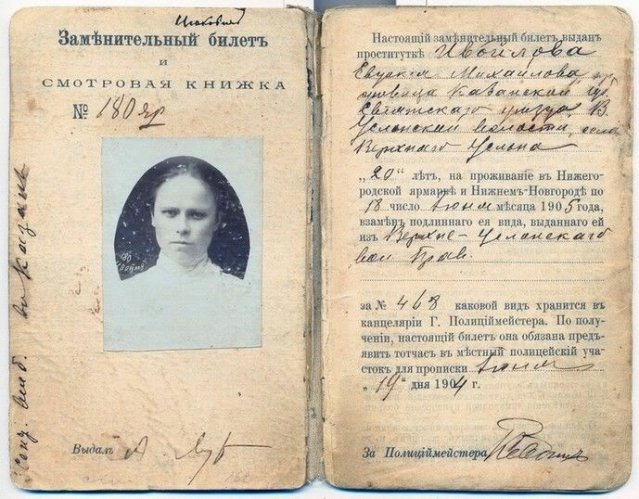 Замѣнительный билетъ
и
СМОТРОВАЯ КНИЖКА
№ 180 яр
Выдалъ
Настоящій замѣнительный билетъ выданъ
проституткѣ Ивойлова
Евдокія Михайлова
Казанской губ.
Свіяжскаго уѣзда, В.
Услонской волости, села
Верхняго Услона
„20“ лѣтъ, на проживаніе въ Нижего-
родской ярмаркѣ и Нижнемъ-Новгородѣ по
18 число Іюня мѣсяца 1905 года,
взамѣнъ подлиннаго ея вида, выданнаго ей
изъ Верхне-Услонскаго
вол Прав.
за № 468 каковой видъ хранится въ
канцеляріи Г. Полиціймейстера. По полу-
ченіи, настоящій билетъ она обязана предъ-
явить тотчасъ въ мѣстный полицейскій уча-
стокъ для прописки Іюня
„19“ дня 1904 г.
За Полиціймейстера